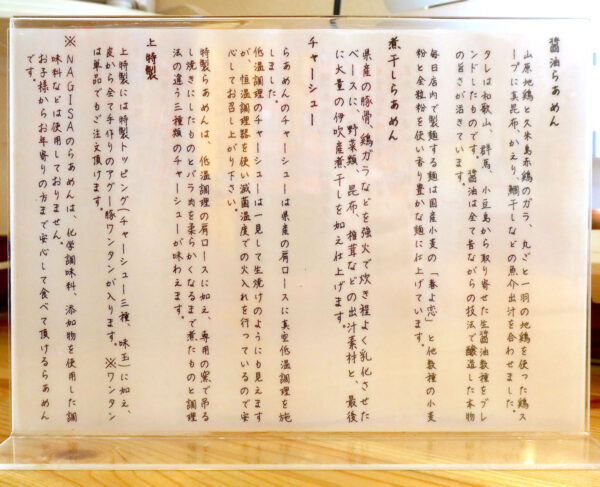 醤油らぁめん
山原地鶏と久米島赤鶏のガラ、丸ごと一羽の地鶏を使った鶏ス
ープに真昆布、かえり、鯛干しなどの魚介出汁を合わせました。
タレは和歌山、群馬、小豆島から取り寄せた生醤油数種をブレ
ンドしたものです。醤油は全て昔ながらの技法で醸造した本物
の旨さが活きています。
毎日店内で製麺する麺は国産小麦の「春よ恋」と他数種の小麦
粉と全粒粉を使い香り豊かな麺に仕上げています。
煮干しらぁめん
県産の豚骨、鶏ガラなどを強火で炊き程よく乳化させた
ベースに、野菜類、昆布、椎茸などの出汁素材と、最後
に大量の伊吹産煮干しを加え仕上げます。
チャーシュー
らぁめんのチャーシューは県産の肩ロースに真空低温調理を施
しました。
低温調理のチャーシューは一見して生焼けのようにも見えます
が、恒温調理器を使い滅菌温度での火入れを行っているので安
心してお召し上がり下さい。
特製らぁめんは、低温調理の肩ロースに加え、専用の窯で吊る
し焼きにしたものとバラ肉を柔らかくなるまで煮たものと調理
法の違う三種類のチャーシューが味わえます。
上特製
上特製には特製トッピング(チャーシュー三種、味玉)に加え、
皮から全て手作りのアグー豚ワンタンが入ります。※ワンタン
は単品でもご注文頂けます。
※NAGISAのらぁめんは、化学調味料、添加物を使用した調
味料などは使用しておりません。
お子様からお年寄りの方まで安心して食べて頂けるらぁめん
です。